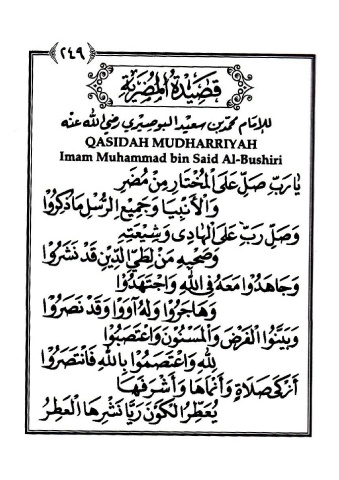 ٢٤٩
قَصِيْدَةُ الْمُضَرِيَّةِ
للإمام محمد بن سعيد البوصيري رضي الله عنه
QASIDAH MUDHARRIYAH
Imam Muhammad bin Said Al-Bushiri
يَا رَبِّ صَلِّ عَلَى الْمُخْتَارِ مِنْ مُضَرِ
وَالْأَنْبِيَا وَجَمِيْعِ الرُّسْلِ مَا ذُكِرُوْا
وَصَلِّ رَبِّ عَلَى الْهَادِى وَشِيْعَتِهِ
وَصَحْبِهِ مَنْ لِطَيِّ الدِّيْنِ قَدْ نَشَرُوْا
وَجَاهَدُوْا مَعَهُ فِى اللهِ وَاجْتَهَدُوْا
وَهَاجَرُوْا وَلَهُ آوَوْا وَقَدْ نَصَرُوْا
وَبَيَّنُوا الْفَرْضَ وَالْمَسْنُوْنَ وَاعْتَصَبُوْا
لِلهِ وَاعْتَصَمُوْا بِاللهِ فَانْتَصَرُوْا
أَزْكَى صَلَاةٍ وَأَنْمَاهَا وَأَشْرَفَهَا
يُعَطِّرُ الْكَوْنَ رَيَّا نَشْرِهَا الْعَطِرُ